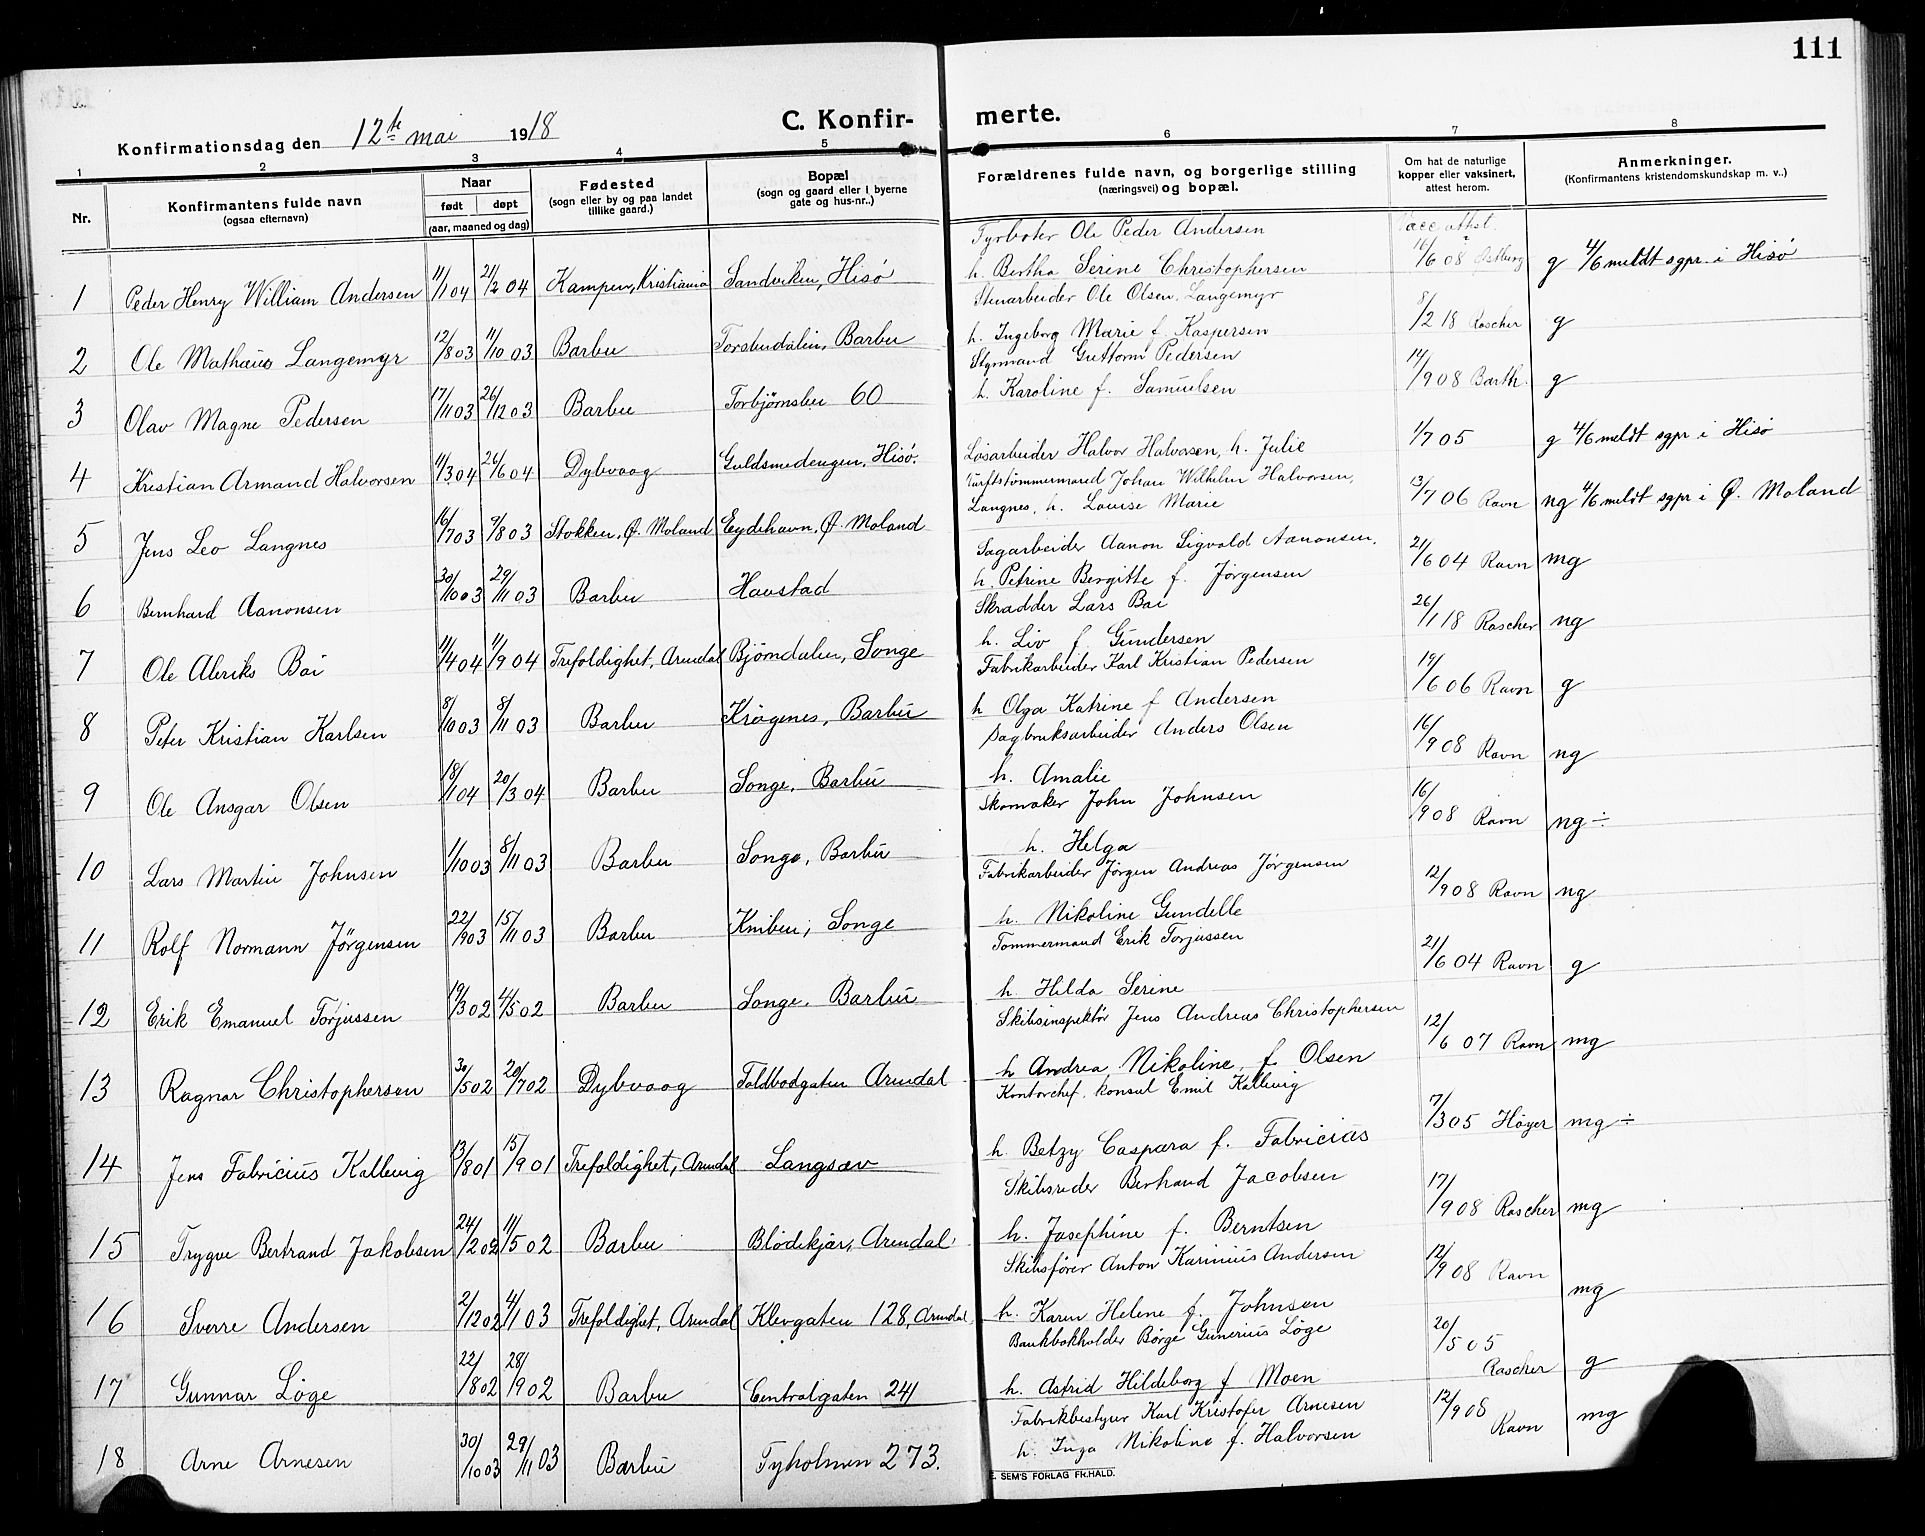 111
C. Konfirmerte.
Konfirmationsdag den 12te mai 1918
1 2 3 4 5 6 7 8
Nr.
Konfirmantens fulde navn
(ogsaa efternavn)
Naar
født døpt
(aar, maaned og dag)
Fødested
(sogn eller by og paa landet
tillike gaard.)
Bopæl
(sogn og gaard eller i byerne
gate og hus-nr..)
Forældrenes fulde navn, og borgerlige stilling
(næringsvei) og bopæl.
Om hat de naturlige
kopper eller vaksinert,
attest herom.
Anmerkninger.
(Konfirmantens kristendomskundskap m. v..)
Vacc. attst.
Fyrbøter Ole Peder Andersen
1 Peder Henry William Andersen 11/1 04 21/2 04 Kampen, Kristiania Sandviken, Hisø h. Bertha Serine Christophersen 16/6 08 g 4/6 meldt sgpr. i Hisø
Stenarbeider Ole Olsen Langemyr
2 Ole Mathæus Langemyr 12/8 03 11/10 03 Barbu Torsbudalen, Barbu h. Ingeborg Marie f. Kaspersen 8/2 18 Rascher g
Styrmand Guttorm Pedersen
3 Olav Magne Pedersen 17/11 03 26/12 03 Barbu Torbjørnsbu 60 h. Karoline f. Samuelsen 14/9 08 Barth. g
4 Kristian Armand Halvorsen 11/3 04 26/6 04 Dybvaag Guldsmedengen, Hisø. Løsarbeider Halvor Halvorsen, h. Julie 1/7 05 g 4/6 meldt sgpr i Hisø
Johan Wilhelm Halvorsen,
5 Jens Leo Langnes 16/7 03 9/8 03 Stokken, Ø. Moland Eydehavn, Ø. Moland Langnes, h. Louise Marie 13/7 06 Ravn ng 4/6 meldt sgpr i Ø. Moland
Sagarbeider Aanon Sigvald Aanonsen,
6 Bernhard Aanonsen 30/10 03 29/11 03 Barbu Havstad h. Petrine Bergitte f. Jørgensen 21/6 04 Ravn mg
Skradder Lars Bai
7 Ole Aleriks Bai 11/4 04 11/9 04 Trefoldighet, Arendal Bjørndalen, Songe h. Liv f. Gundersen 26/1 18 Rascher ng
Fabrikarbeider Karl Kristian Pedersen
8 Peter Kristian Karlsen 8/10 03 8/11 03 Barbu Krøgenes, Barbu h Olga Katrine f Andersen 19/6 06 Ravn g
Sagbruksarbeider Anders Olsen
9 Ole Ansgar Olsen 18/1 04 20/3 04 Barbu Songe, Barbu h. Amalie 16/9 08 Ravn ng
Skomaker John Johnsen
10 Lars Martin Johnsen 1/10 03 8/11 03 Barbu Songe, Barbu h. Helga 16/9 08 Ravn ng ÷
Fabrikarbeider Jørgen Andreas Jørgensen
11 Rolf Normann Jørgensen 22/9 03 15/11 03 Barbu Kniben, Songe h. Nikoline Gundelle 12/9 08 Ravn ng
Tømmermand Erik Torjussen
12 Erik Emanuel Torjussen 19/3 02 4/5 02 Barbu Songe, Barbu h Hilda Serine 21/6 04 Ravn g
Skibsinspektør Jens Andreas Christophersen
13 Ragnar Christophersen 30/5 02 20/7 02 Dybvaag Toldbodgaten Arendal h Andrea Nikoline f. Olsen 12/6 07 Ravn mg
Kontorchef, konsul Emil Kallevig
14 Jens Fabricius Kallevig 13/8 01 15/9 01 Trefoldighet, Arendal Langsæv h. Betzy Caspara f. Fabricius 7/3 05 Høyer mg ÷
Skibsreder Berhand Jacobsen
15 Trygve Bertrand Jakobsen 24/2 02 11/5 02 Barbu Blødekjær, Arendal h. Josephine f. Berntsen 17/9 08 Rascher mg
Skibsfører Anton Karinius Andersen
16 Sverre Andersen 2/12 02 4/1 03 Trefoldighet, Arendal Klevgaten 128, Arendal h. Karen Helene f. Johnsen 12/9 08 Ravn mg
Bankbokholder Børge Gunerius Løge
17 Gunnar Løge 22/8 02 28/9 02 Barbu Centralgaten 241 h. Astrid Hildeborg f Moen 20/5 05 Rascher g
Fabrikbestyrer Karl Kristofer Arnesen
18 Arne Arnesen 30/10 03 29/11 03 Barbu Tyholmen 273. h. Inga Nikoline f. Halvorsen 12/9 08 Ravn mg
E. SEM'S FORLAG FR.HALD.